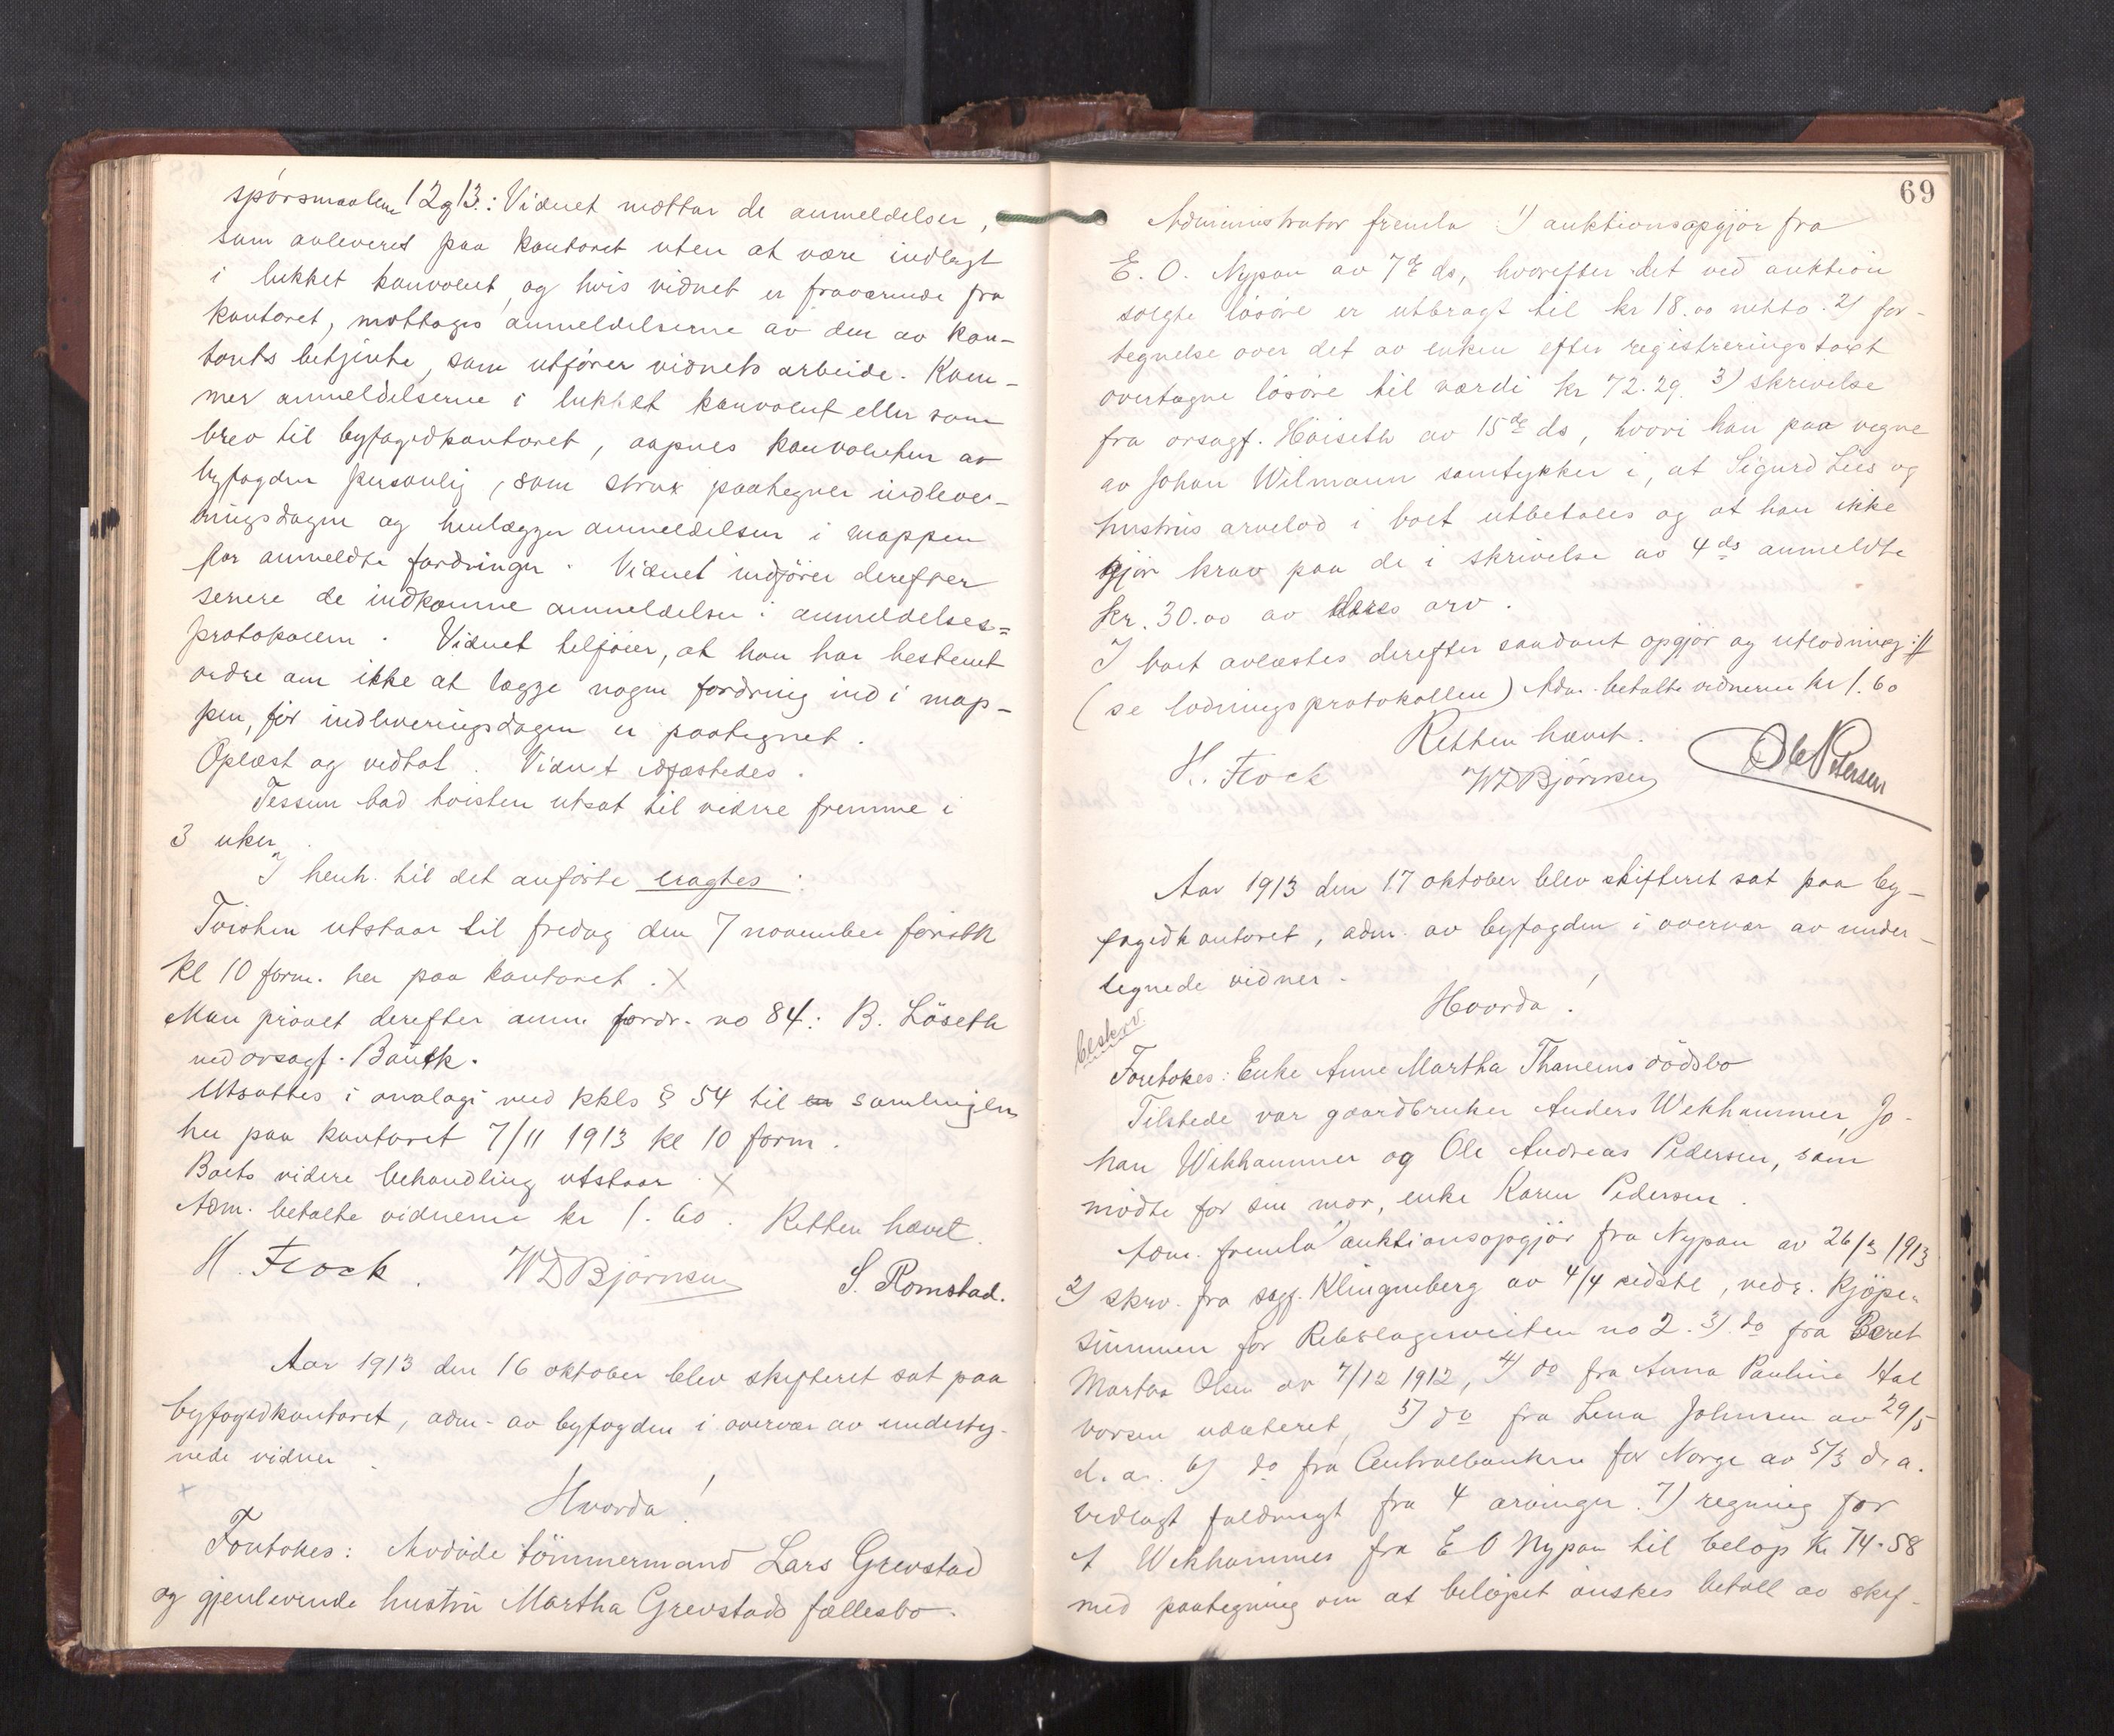 spørsmaalene 12 og 13.: Vidnet mottar de anmeldelser,
som avleveres paa kontoret uten at være indlagt
i lukket konvolut, og hvis vidnet er fraværende fra
kontoret, mottages anmeldelserne av den av kon-
torets betjente, som utfører vidnets arbeide. Kom-
mer anmeldelserne i lukket konvolut eller som
brev til byfogedkontoret, aapnes konvoluten av
byfogden personlig, som strax paategner indlever-
ingsdagen og henlægger anmeldelsen i mappen
for anmeldte fordringer. Vidnet indfører derefter
senere de indkomne anmeldelser i anmeldelses=
protokollen. Vidnet tilføier, at han har bestemt
ordre om ikke at lægge nogen fordring ind i map-
pen, før indleveringsdagen er paategnet.
Oplæst og vedtat. Vidnet edfæstedes.
Tessem bad tvisten utsat til videre fremme i
3 uker.
I henh. til det anførte eragtes:
Tvisten utstaar til fredag den 7 november førstk
kl 10 form. her paa kontoret. X
Man prøvet derefter anm. fordr. no 84: B. Löseth
ved orsagf. Bautk.
Utsattes i analogi med kkls § 54 til en samlingen
her paa kontoret 7/11 1913 kl 10 form.
Boets videre behandling utstaar. X
Adm. betalte vidnerne kr 1.60. Retten hævet.
H. Flock. WDBjørnsen S. Romstad.
Aar 1913 den 16 oktober blev skifteret sat paa
byfogedkontoret, adm. av byfogden i overvær av underteg-
nede vidner.
Hvorda!
Foretokes: Avdøde tömmermand Lars Grevstad
og gjenlevende hustru Martha Grevstads fællesbo.
69
Administrator fremla 1) auktionsopgjør fra
E. O. Nypan av 7de ds, hvorefter det ved auktion
solgte løsøre er utbragt til kr 18.00 netto. 2) for-
tegnelse over det av enken efter registreringstaxt
overtagne løsøre til værdi kr 72.29. 3) skrivelse
fra orsagf. Höiseth av 15de ds, hvori han paa vegne
av Johan Wilmann samtykker i, at Sigurd Liis og
hustrus arvelod i boet utbetales og at han ikke
gjør krav paa de i skrivelse av 4 ds anmeldte
kr. 30.00 av deres arv.
I boet avlæstes derefter saadant opgjør og utlodning:
(se lodningsprotokollen) Adm. betalte vidnerne kr 1.60
Retten hævet.
H. Flock WDBjørnsen Ole Petersen
Aar 1913 den 17 oktober blev skifteret sat paa by-
fogedkontoret, adm. av byfogden i overvær av under-
tegnede vidner.
Hvorda!
beskrv.
Foretokes: Enke Anne Martha Thanems dödsbo
Tilstede var gaardbruker Anders Wekhammer, Jo-
han Wikhammer og Ole Andreas Pedersen, som
mødte for sin mor, enke Karen Pedersen.
Adm. fremla 1) auktionsopgjør fra Nypan av 26/3 1913
2) skrv. fra sagf. Klingenberg av 4/4 sidstl, vedr. kjøpe-
summen for Rebslagerveiten no 2. 3) do fra Beret
Martha Olsen av 7/12 1912, 4) do fra Anna Pauline Hal
vorsen udateret, 5) do fra Lena Johnsen av 29/5
d. a. 6) do fra Centralbanken for Norge av 5/3 d. a.
vedlagt fuldmagt fra 4 arvinger. 7) regning for
A Wekhammer fra E O Nypan til beløp Kr 74.58
med paategning om at beløpet ønskes betalt av skif-